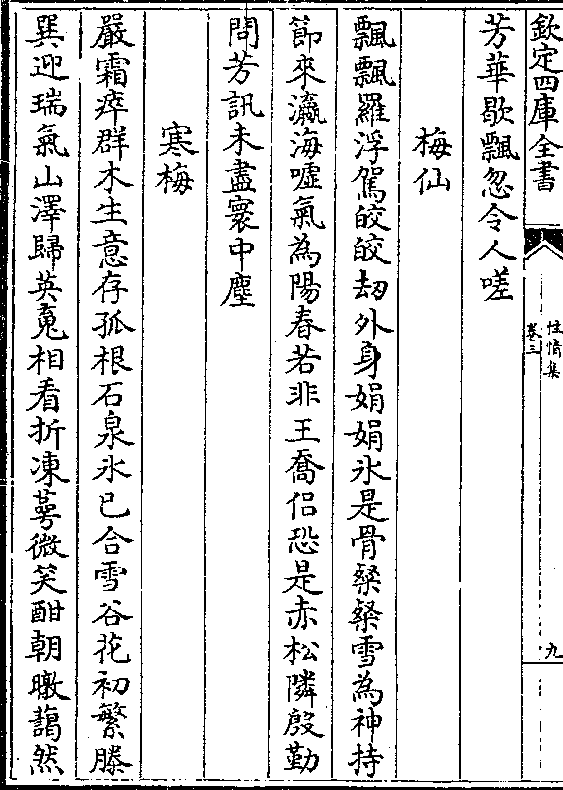 欽定四庫全書
性情集
卷三
九
芳華歇飄忽令人嗟
梅仙
飄飄羅浮駕皎皎刼外身娟娟氷是骨粲粲雪為神持
節來瀛海嘘氣為陽春若非王喬侶恐是赤松隣殷勤
問芳訊未盡寰中塵
寒梅
嚴霜瘁群木生意存孤根石泉氷已合雪谷花初繁滕
巽迎瑞氣山澤歸英䰟相看折凍萼微笑酣朝暾藹然